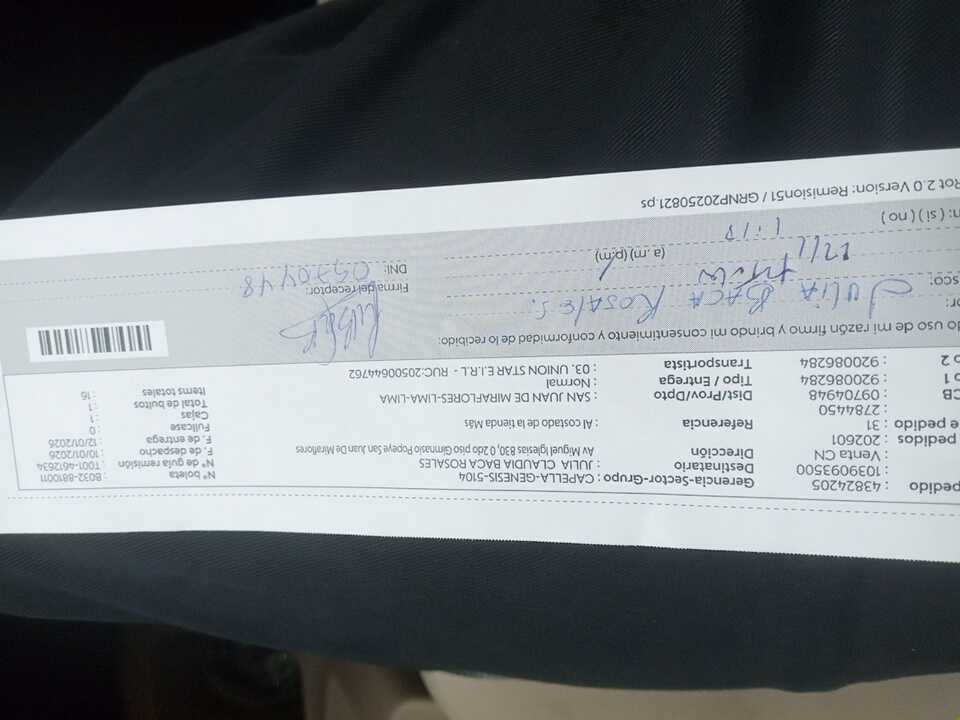 pedido : 43824205 Gerencia-Sector-Grupo : CAPELLA-GENESIS-5104 Nº boleta : B032-8810011
: 1039093500 Destinatario : JULIA CLAUDIA BACA ROSALES Nº de guía remisión : T001-4612634
: Venta CN Dirección Av Miguel Iglesias 830, 0 2do piso Gimnasio Popeye San Juan De Miraflores F. de despacho : 10/01/2026
pedidos : 202601 F. de entrega : 12/01/2026
e pedido : 31 Referencia : Al costado de la tienda Más Fullcase : 0
: 2784450 Cajas : 1
CB : 09704948 Dist/Prov/Dpto : SAN JUAN DE MIRAFLORES-LIMA-LIMA Total de bultos : 1
o 1 : 920086284 Tipo / Entrega : Normal Items totales : 16
o 2 : 920086284 Transportista : 03. UNION STAR E.I.R.L. - RUC:20500644762
do uso de mi razón firmo y brindo mi consentimiento y conformidad de lo recibido:
or: JULIA BACA ROSALES.
sco: Firma del receptor:
(a.m) (p.m) DNI:
n: ( si ) ( no )
Rot 2.0 Version: Remision51 / GRNP20250821.ps